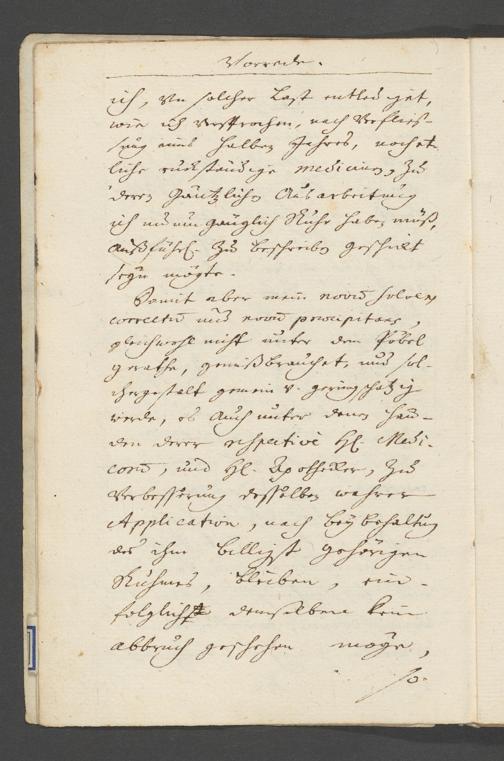 Vorrede.
ich, von solcher Last entlediget,
wie ich versprochen, nach Verflies-
sung eines halben Jahres, noch et-
liche rückständige medicin, zu
deren Gäntzlichen Ausarbeitung
ich nun Ruhe haben muß,
Außführl. zu beschreiben geschickt
seyn mögte.
Damit aber mein novum solvens
correctum und novum praecipitans,
gleichwohl nicht unter dem Pöbel
gerathe, gemißbrauchet, und sol-
chergestalt gemein u. geringschätzig
werde, es auch unter denen Hän-
den derer respective HL. Medi-
corum, und HL. Apotheker, zu
Verbesserung desselben wahrer
Application, nach beybehaltung
des ihm billigst gehörigen
Ruhmes, bleiben, ein-
folglich demselben kein
abbruch geschehen möge,
so